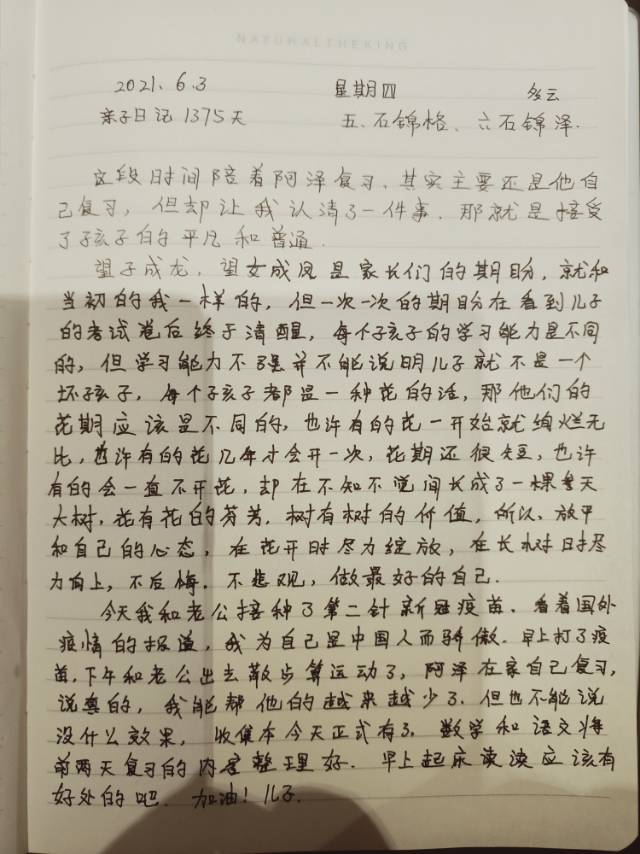 NATURALTHEKING
2021.6.3 星期四 多云
亲子日记1375天 五.石锦格、六石锦泽.
这段时间陪着阿泽复习.其实主要还是他自
己复习,但却让我认清了一件事.那就是接受
了孩子的平凡和普通.
望子成龙,望女成凤是家长们的期盼,就和
当初的我一样的,但一次一次的期盼在看到儿子
的考试卷后终于清醒,每个孩子的学习能力是不同
的,但学习能力不强并不能说明儿子就不是一个
坏孩子,每个孩子都是一种花的话,那他们的
花期应该是不同的,也许有的花一开始就绚烂无
比,也许有的花几年才会开一次,花期还很短,也许
有的会一直不开花,却在不知不觉间长成了一棵参天
大树,花有花的芬芳.树有树的价值,所以、放平
和自己的心态,在花开时尽力绽放,在长树时尽
力向上,不后悔.不悲观,做最好的自己.
今天我和老公接种了第二针新冠疫苗.看着国外
疫情的报道,我为自己是中国人而骄傲.早上打了疫
苗,下午和老公出去散步算运动了,阿泽在家自己复习,
说真的,我能帮他的越来越少了.但也不能说
没什么效果,收集本今天正式有了.数学和语文将
前两天复习的内容整理好.早上起床读读应该有
好处的吧.加油!儿子.